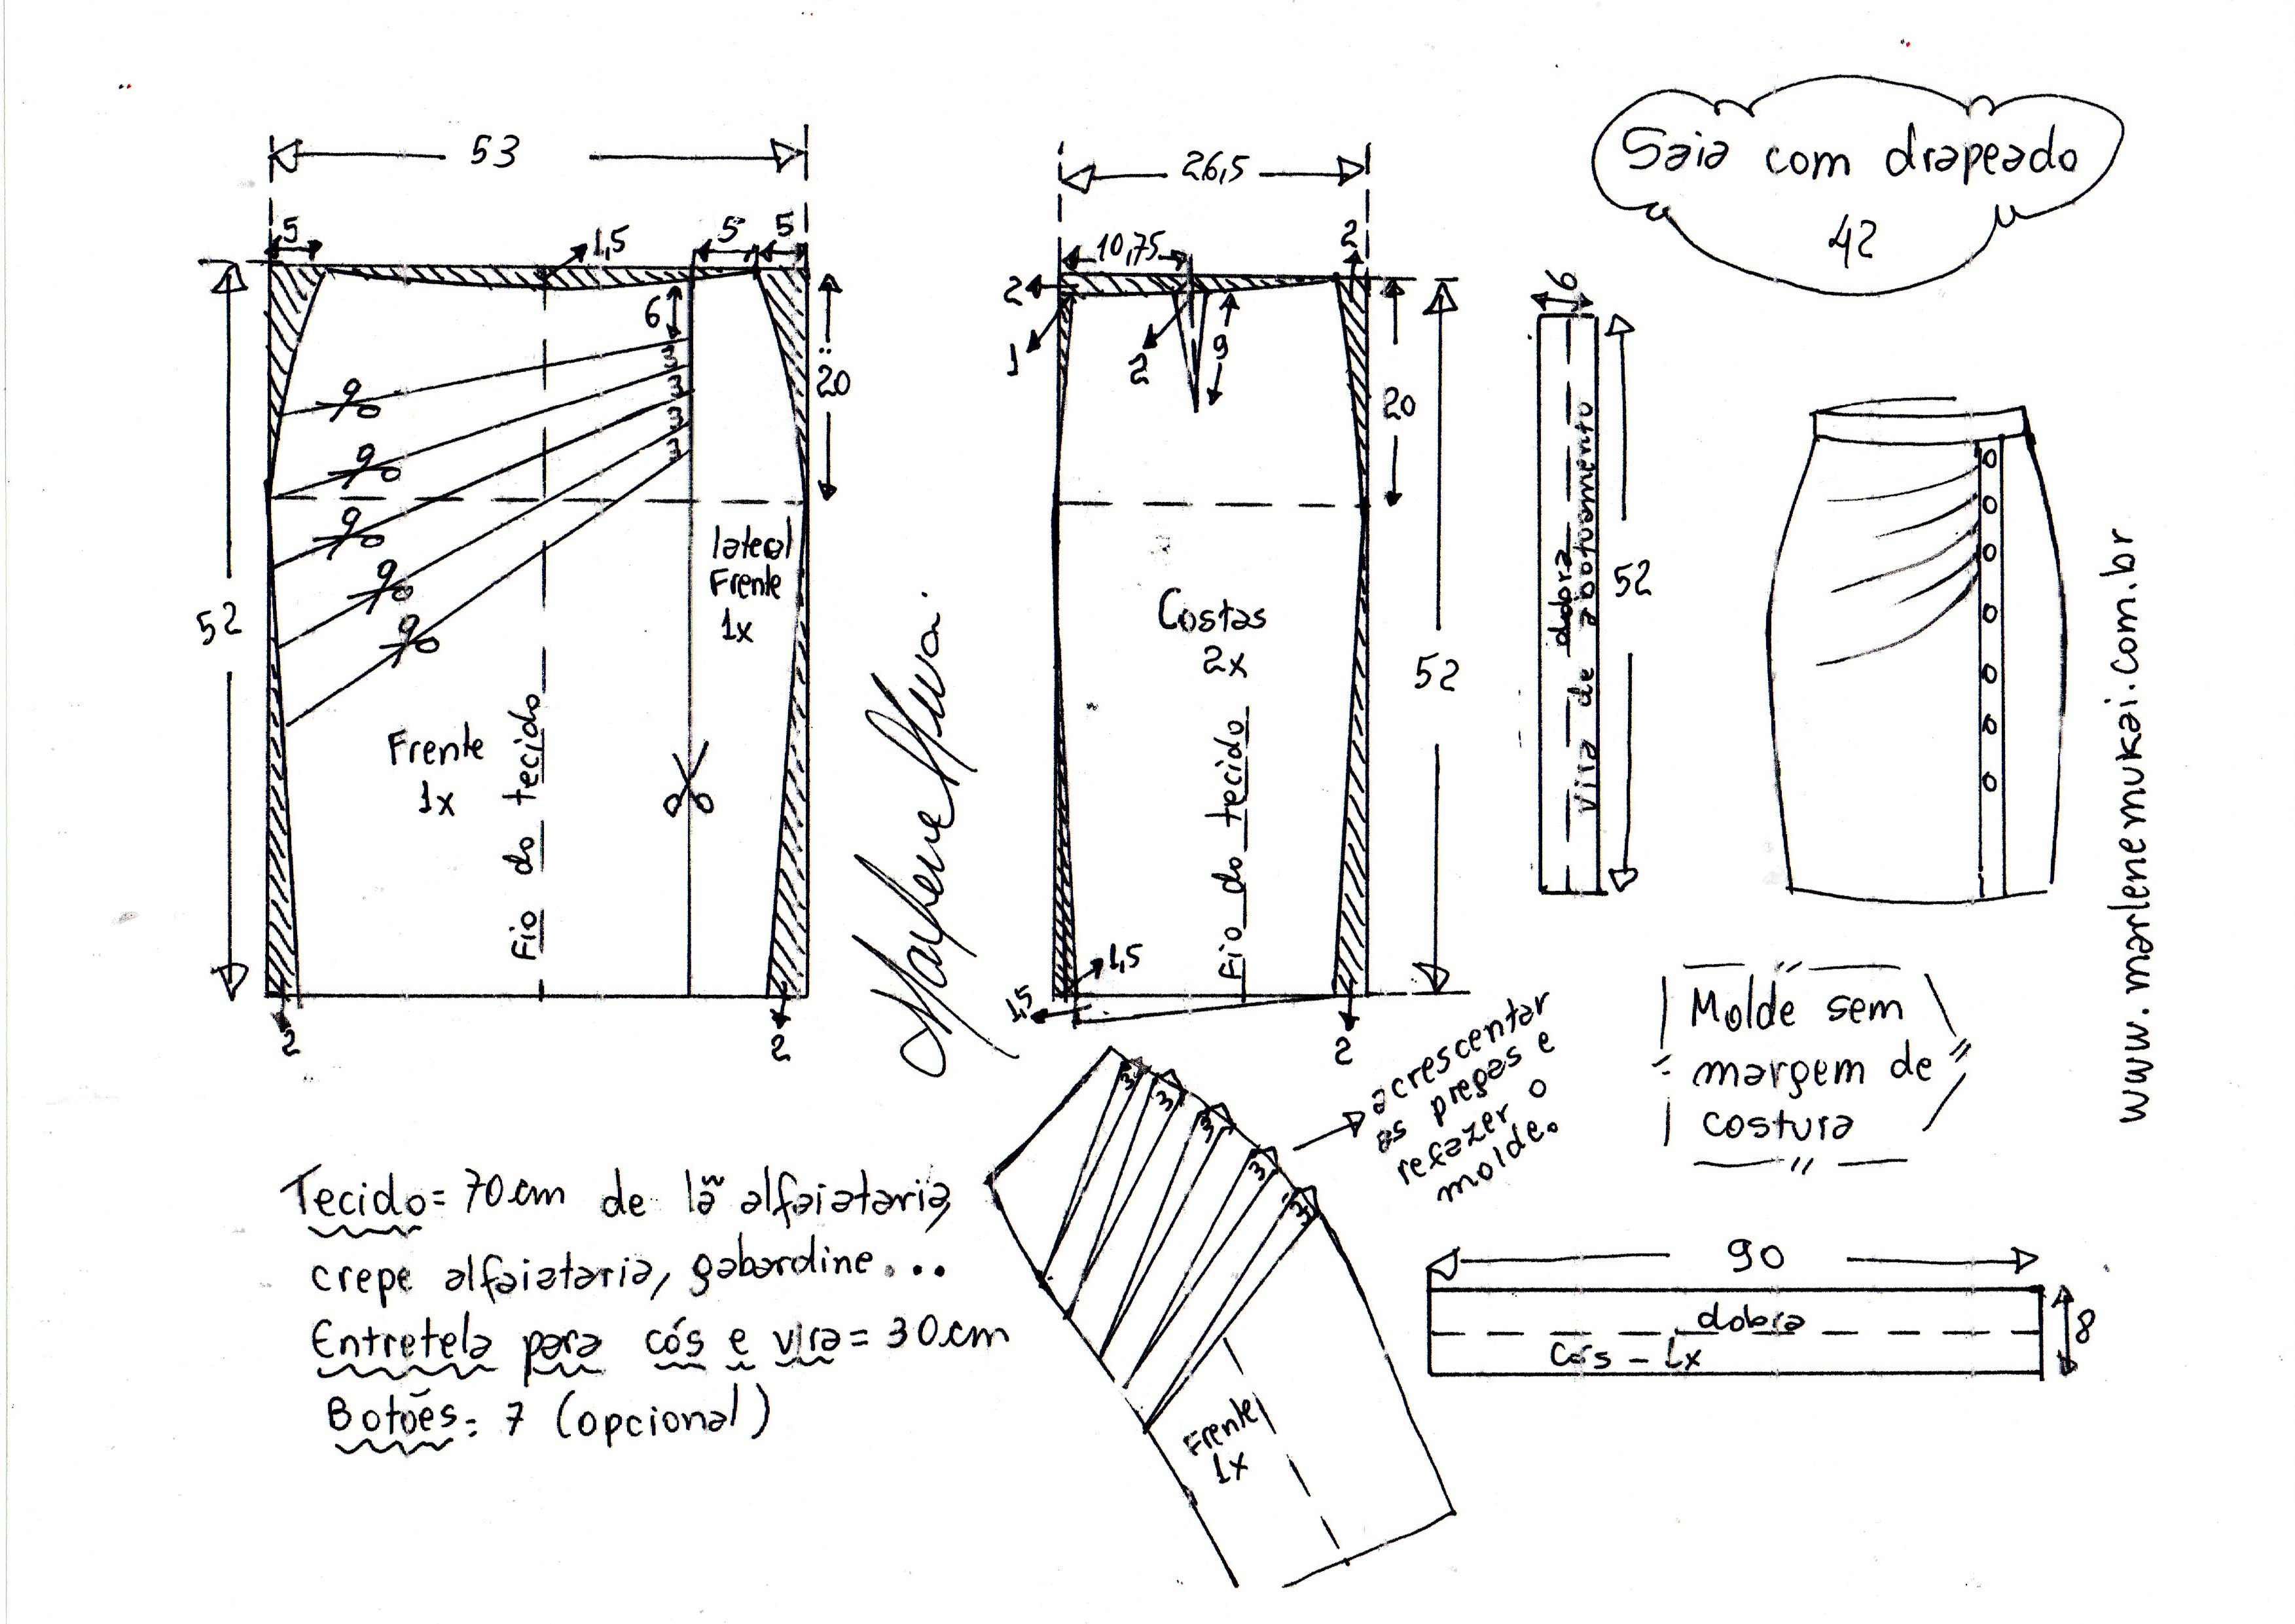 Saia com drapeado
42
53
5
1,5
5
5
6
3
3
3
3
20
52
lateral
Frente
1x
Frente
1x
Fio do tecido
2
2
26,5
10,75
2
2
1
2
9
20
52
Costas
2x
Fio do tecido
1,5
1,5
2
6
dobra
vira de abotoamento
52
www.marlenemukai.com.br
Marlene Mukai
Molde sem
margem de
costura
acrescentar
as pregas e
refazer o
molde.
3
3
3
3
3
Frente
1x
90
dobra
Cós - 1x
8
Tecido = 70cm de lã alfaiataria,
crepe alfaiataria, gabardine...
Entretela para cós e vira = 30cm
Botões: 7 (opcional)